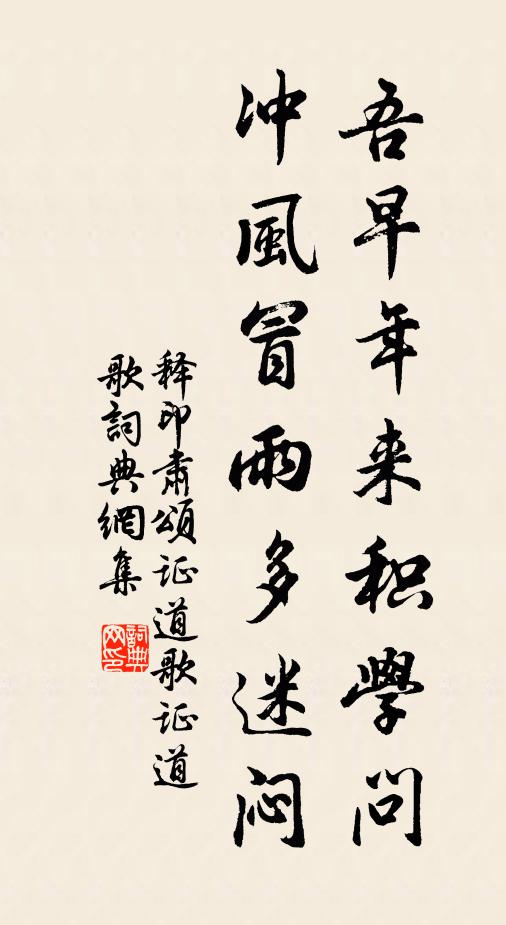 吾早年来积學问
冲風冒雨多迷闷
释印肃頌证道歌证道
歌詞典網集
詞典网印